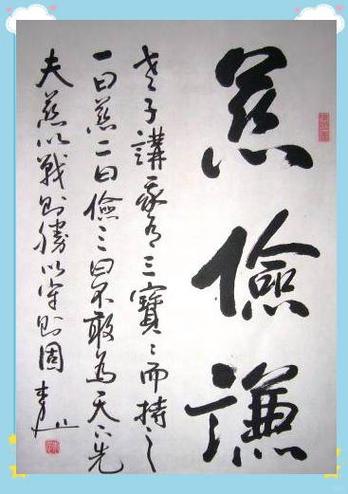 慈儉謙
老子講我有三寶〻而持之
一曰慈二曰儉三曰不敢為天下先
夫慈以戰則勝以守則固